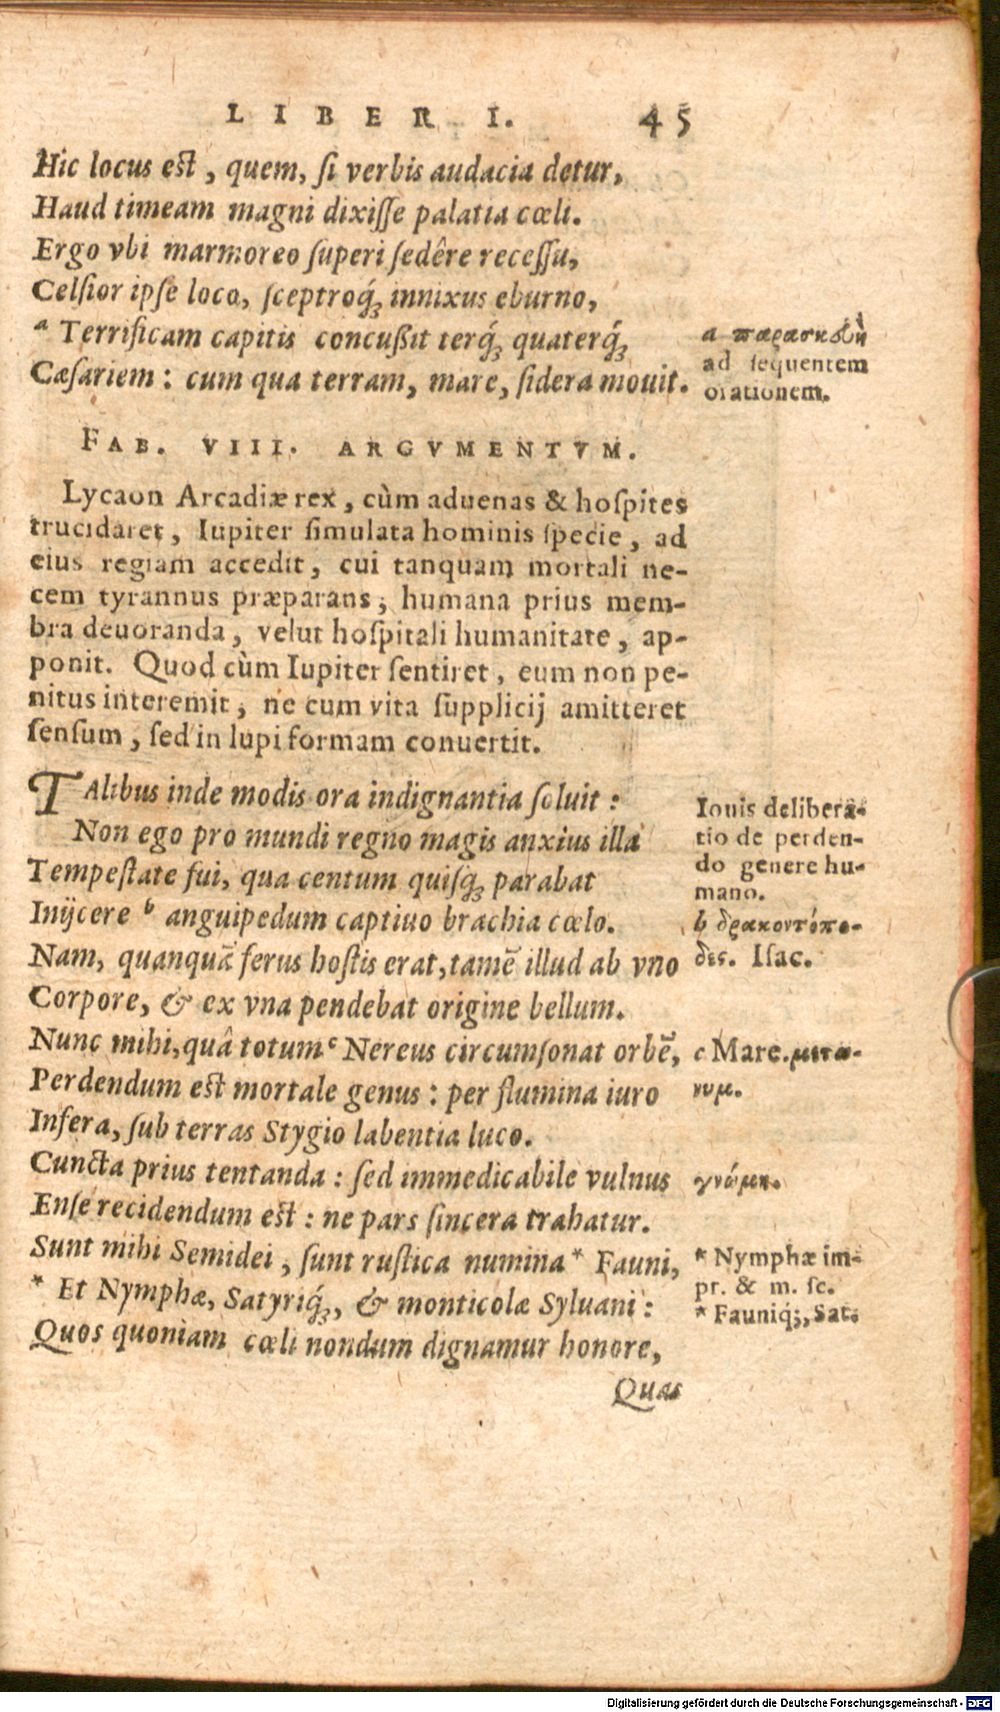 LIBER I. 45
Hic locus est, quem, ſi verbis audacia detur,
Haud timeam magni dixiſſe palatia cœli.
Ergo vbi marmoreo ſuperi ſedêre receſſu,
Celſior ipſe loco, ſceptroq́ꝫ innixus eburno,
a Terrificam capitis concußit terq́ꝫ quaterq́ꝫ
Cæſariem: cum qua terram, mare, ſidera mouit.
a παρασκευὴ
ad ſequentem
orationem.
FAB. VIII. ARGVMENTVM.
Lycaon Arcadiæ rex, cùm aduenas & hoſpites
trucidaret, Iupiter ſimulata hominis ſpecie, ad
eius regiam accedit, cui tanquam mortali ne-
cem tyrannus præparans, humana prius mem-
bra deuoranda, velut hoſpitali humanitate, ap-
ponit. Quod cùm Iupiter ſentiret, eum non pe-
nitus interemit, ne cum vita ſupplicij amitteret
ſenſum, ſed in lupi formam conuertit.
TAlibus inde modis ora indignantia ſoluit:
Non ego pro mundi regno magis anxius illa
Tempeſtate fui, qua centum quiſq́ꝫ parabat
Inijcere b anguipedum captiuo brachia cœlo.
Nam, quanquā ferus hoſtis erat, tamē illud ab vno
Corpore, & ex vna pendebat origine bellum.
Nunc mihi, quâ totum c Nereus circumſonat orbē,
Perdendum est mortale genus: per flumina iuro
Infera, ſub terras Stygio labentia luco.
Cuncta prius tentanda: ſed immedicabile vulnus
Enſe recidendum est: ne pars ſincera trahatur.
Sunt mihi Semidei, ſunt ruſtica numina * Fauni,
* Et Nymphæ, Satyriq́ꝫ, & monticolæ Syluani:
Quos quoniam cœli nondum dignamur honore,
Quas
Iouis delibera-
tio de perden-
do genere hu-
mano.
b δρακοντόπο-
δες. Iſac.
c Mare. μετω-
νυμ.
γνώμη.
* Nymphæ im-
pr. & m. ſc.
* Fauniq;, Sat.
Digitalisierung gefördert durch die Deutsche Forschungsgemeinschaft - DFG